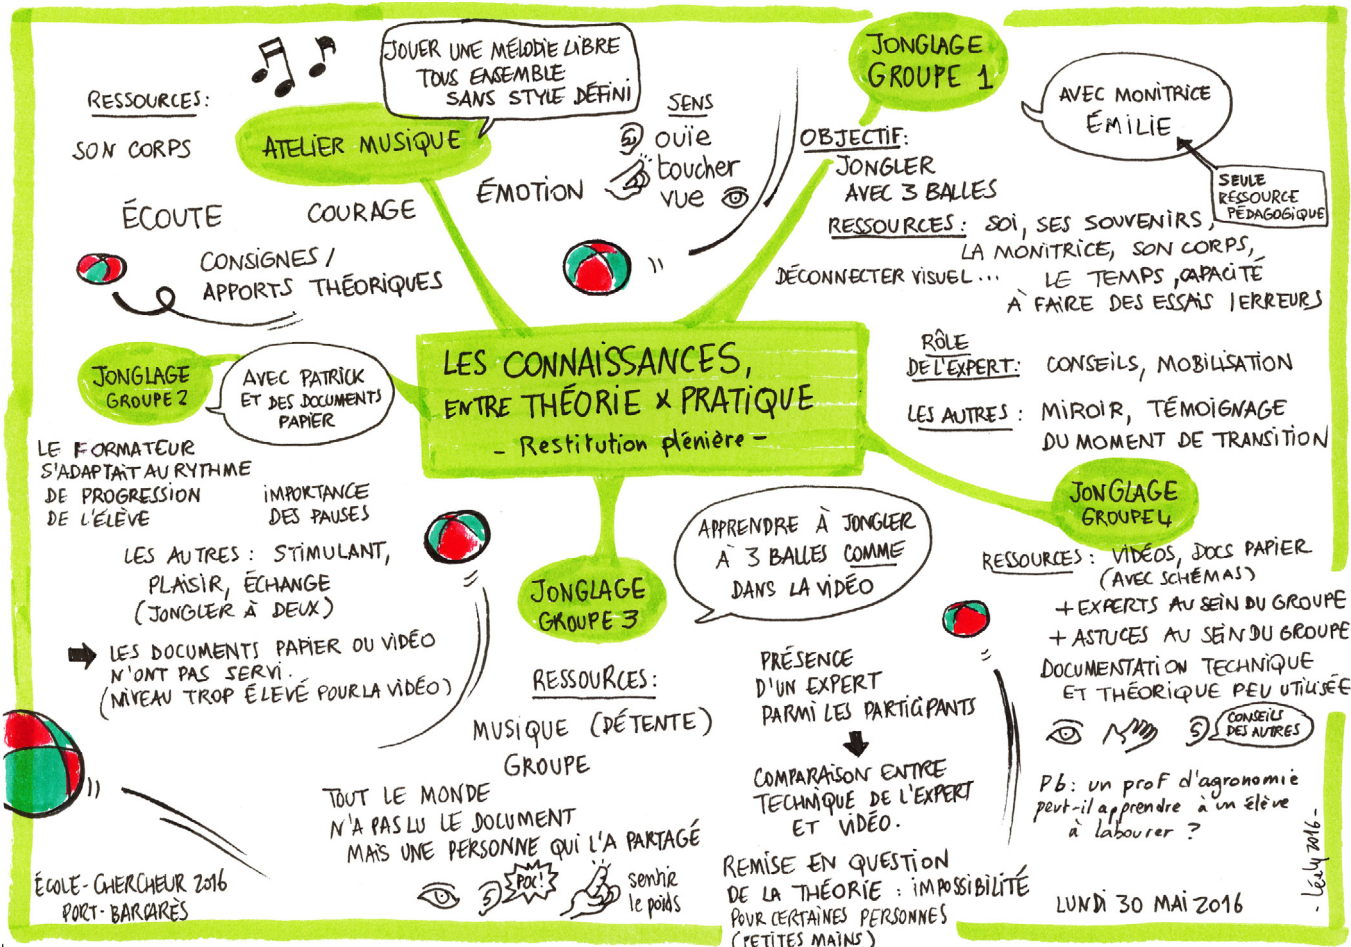 JOUER UNE MÉLODIE LIBRE
TOUS ENSEMBLE
SANS STYLE DÉFINI
ATELIER MUSIQUE
RESSOURCES :
SON CORPS
ÉCOUTE
COURAGE
ÉMOTION
CONSIGNES /
APPORTS THÉORIQUES
SENS
ouïe
toucher
vue
JONGLAGE
GROUPE 1
AVEC MONITRICE
ÉMILIE
SEULE
RESSOURCE
PÉDAGOGIQUE
OBJECTIF :
JONGLER
AVEC 3 BALLES
RESSOURCES : SOI, SES SOUVENIRS,
LA MONITRICE, SON CORPS,
DÉCONNECTER VISUEL... LE TEMPS, CAPACITÉ
À FAIRE DES ESSAIS / ERREURS
RÔLE
DE L'EXPERT : CONSEILS, MOBILISATION
LES AUTRES : MIROIR, TÉMOIGNAGE
DU MOMENT DE TRANSITION
LES CONNAISSANCES,
ENTRE THÉORIE X PRATIQUE
- Restitution plénière -
JONGLAGE
GROUPE 2
AVEC PATRICK
ET DES DOCUMENTS
PAPIER
LE FORMATEUR
S'ADAPTAIT AU RYTHME
DE PROGRESSION
DE L'ÉLÈVE
IMPORTANCE
DES PAUSES
LES AUTRES : STIMULANT,
PLAISIR, ÉCHANGE
(JONGLER À DEUX)
LES DOCUMENTS PAPIER OU VIDÉO
N'ONT PAS SERVI.
(NIVEAU TROP ÉLEVÉ POUR LA VIDÉO)
JONGLAGE
GROUPE 3
APPRENDRE À JONGLER
À 3 BALLES COMME
DANS LA VIDÉO
RESSOURCES :
MUSIQUE (DÉTENTE)
GROUPE
TOUT LE MONDE
N'A PAS LU LE DOCUMENT
MAIS UNE PERSONNE QUI L'A PARTAGÉ
POC!
sentir
le poids
PRÉSENCE
D'UN EXPERT
PARMI LES PARTICIPANTS
COMPARAISON ENTRE
TECHNIQUE DE L'EXPERT
ET VIDÉO.
REMISE EN QUESTION
DE LA THÉORIE : IMPOSSIBILITÉ
POUR CERTAINES PERSONNES
(PETITES MAINS)
JONGLAGE
GROUPE 4
RESSOURCES : VIDÉOS, DOCS PAPIER
(AVEC SCHÉMAS)
+ EXPERTS AU SEIN DU GROUPE
+ ASTUCES AU SEIN DU GROUPE
DOCUMENTATION TECHNIQUE
ET THÉORIQUE PEU UTILISÉE
CONSEILS
DES AUTRES
Pb : un prof d'agronomie
peut-il apprendre à un élève
à labourer ?
ÉCOLE-CHERCHEUR 2016
PORT-BARCARÈS
LUNDI 30 MAI 2016
- Léaly 2016 -